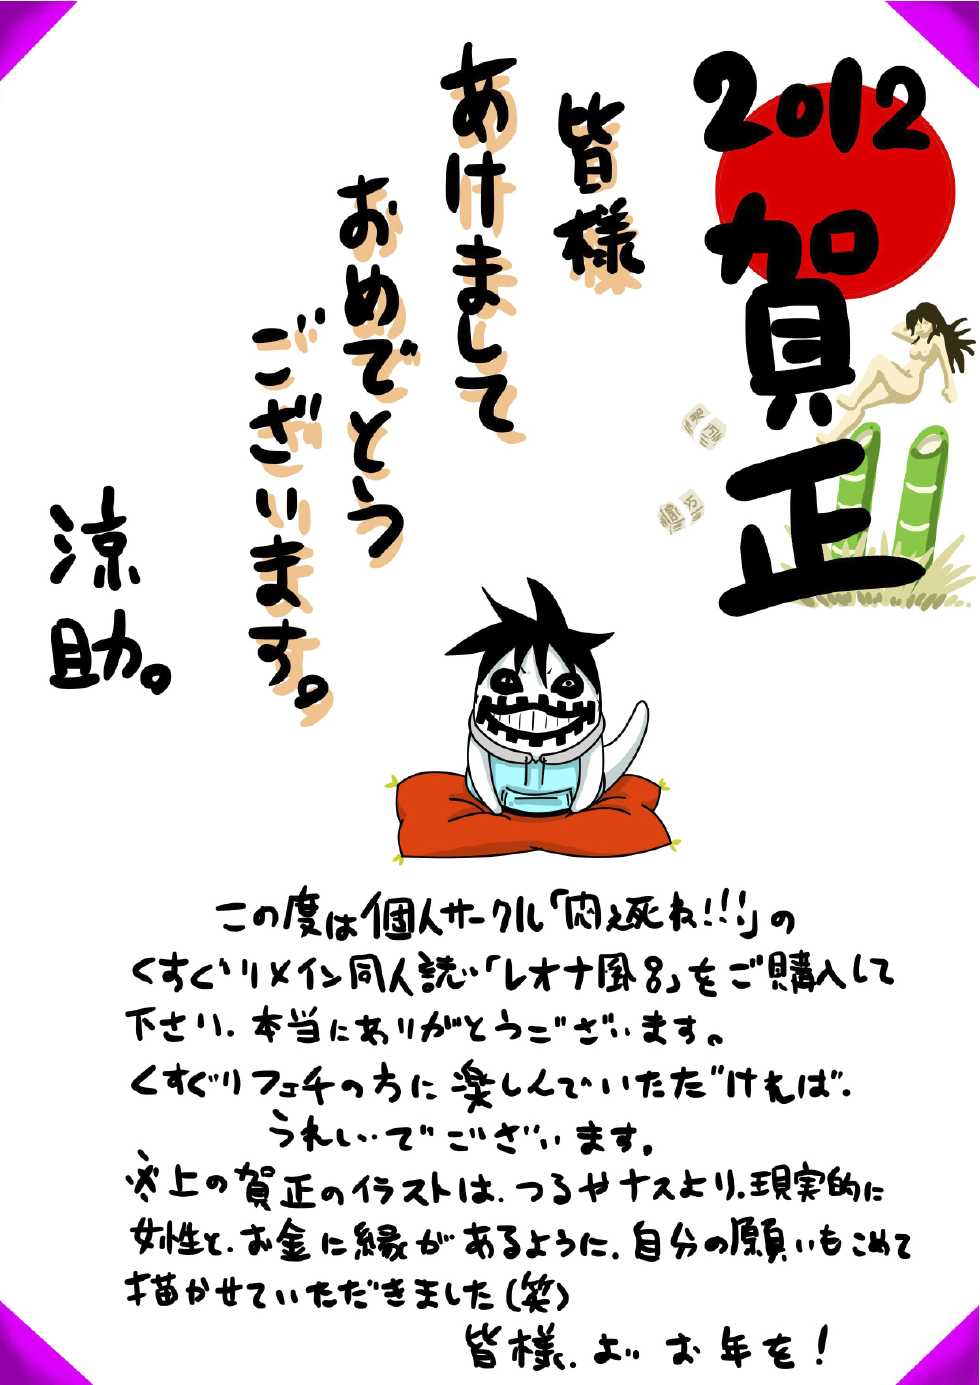 2012
賀正
皆様
あけまして
おめでとう
ございます。
涼助。
この度は個人サークル「悶え死ね!!!」の
くすぐりメイン同人誌「レオナ風8」をご購入して
下さり、本当にありがとうございます。
くすぐりフェチの方に楽しんでいただければ、
うれしいでございます。
※上の賀正のイラストは、つるやナスより、現実的に
女性と、お金に縁があるように、自分の願いもこめて
描かせていただきました(笑)
皆様、よいお年を!